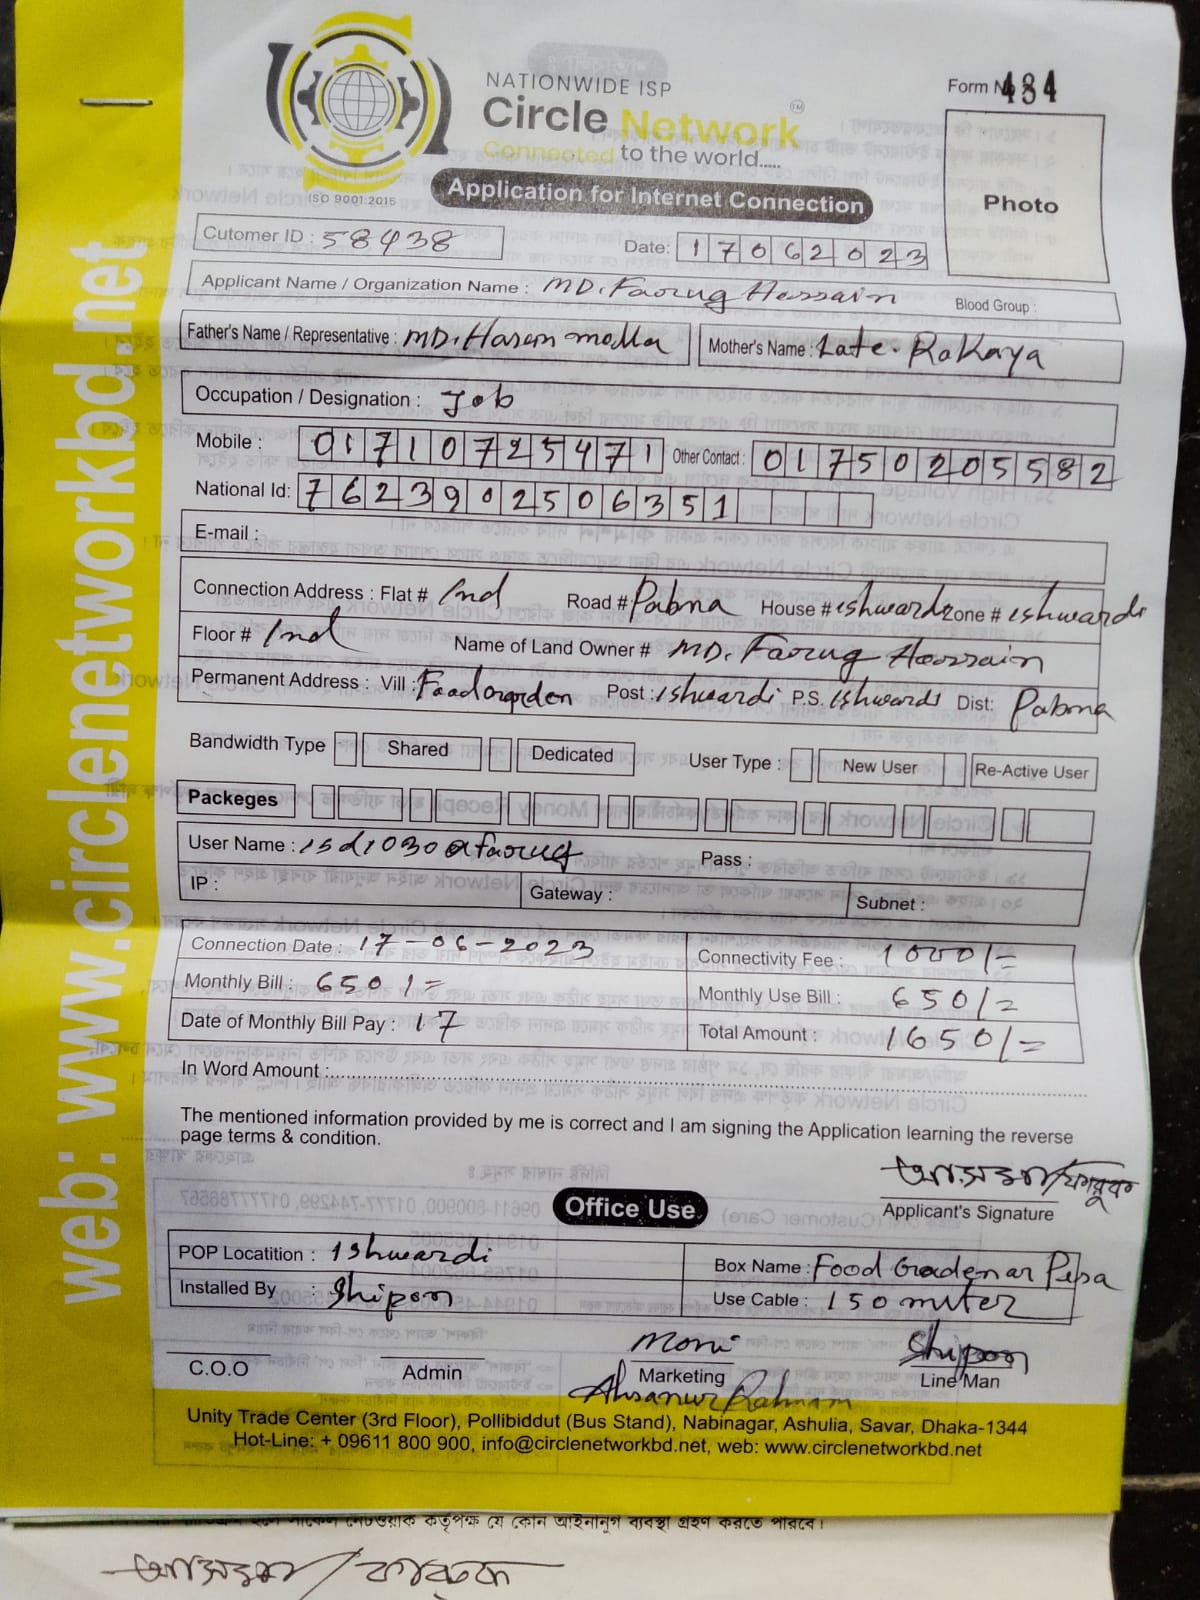 NATIONWIDE ISP
Circle Network ™
Connected to the world.....
ISO 9001:2015
Application for Internet Connection
Form No 484
Photo
Cutomer ID : 58438
Date: 17062023
Applicant Name / Organization Name : MD. Faruq Hossain
Blood Group :
Father's Name / Representative : MD. Hasem molla
Mother's Name : Late. Rokaya
Occupation / Designation : Job
Mobile : 01710725471 Other Contact : 01750205582
National Id: 7623902506351
E-mail :
Connection Address : Flat # 2nd Road # Pabna House # ishwardi Zone # ishwardi
Floor # 2nd Name of Land Owner # MD. Faruq Hossain
Permanent Address : Vill : Foodgorden Post : ishwardi P.S. ishwardi Dist: Pabna
Bandwidth Type Shared Dedicated User Type : New User Re-Active User
Packeges
User Name : isd1030@faruq Pass :
IP : Gateway : Subnet :
Connection Date : 17-06-2023 Connectivity Fee : 1000/=
Monthly Bill : 650/= Monthly Use Bill : 650/=
Date of Monthly Bill Pay : 17 Total Amount : 1650/=
In Word Amount :
The mentioned information provided by me is correct and I am signing the Application learning the reverse
page terms & condition.
Applicant's Signature
Office Use
POP Locatition : Ishwardi Box Name : Food Gradenar Pesa
Installed By : Shipon Use Cable : 150 miter
Moni Shipon
C.O.O Admin Marketing Line Man
Ahsanur Rahman
Unity Trade Center (3rd Floor), Pollibiddut (Bus Stand), Nabinagar, Ashulia, Savar, Dhaka-1344
Hot-Line: + 09611 800 900, info@circlenetworkbd.net, web: www.circlenetworkbd.net
web: www.circlenetworkbd.net
কর্তৃপক্ষ যে কোন আইনানুগ ব্যবস্থা গ্রহণ করতে পারবে।